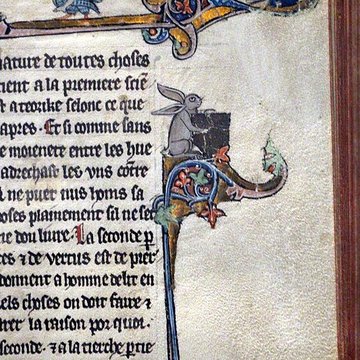 nature de toutes choses
tient a la premiere scie͂
t a teorike selonc ce que
apres · Et si comme sans
e moienete entre les hue
adrechast les vns co͂tre
t ne puet nus hons sa
oses plainement sil ne set
rie dou liure · La seconde p
ces ⁊ de vertus est de pier
donnent a homme delit en
els choses on doit faire ⁊
trer la raison por quoi ·
seconde · ⁊ a la tierche ptie